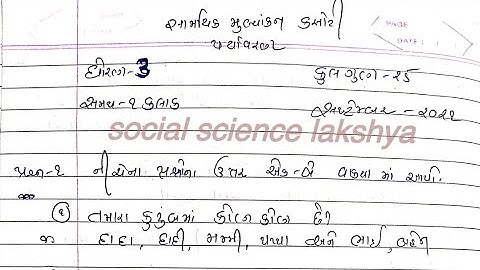 સામયિક મુલ્યાંકન કસોટી
પર્યાવરણ
PAGE
DATE :
ધોરણ-3
કુલ ગુણ - ૨૫
સમય-૧ કલાક
સપ્ટેમ્બર - ૨૦૨૨
social science lakshya
પ્રશ્ન-૧ નીચેના પ્રશ્નોના ઉત્તર એક-બે વાક્યમાં આપો.
૧ તમારા કુટુંબમાં કોણ કોણ છે?
જ દાદા, દાદી, મમ્મી, પપ્પા અને ભાઈ, બહેન